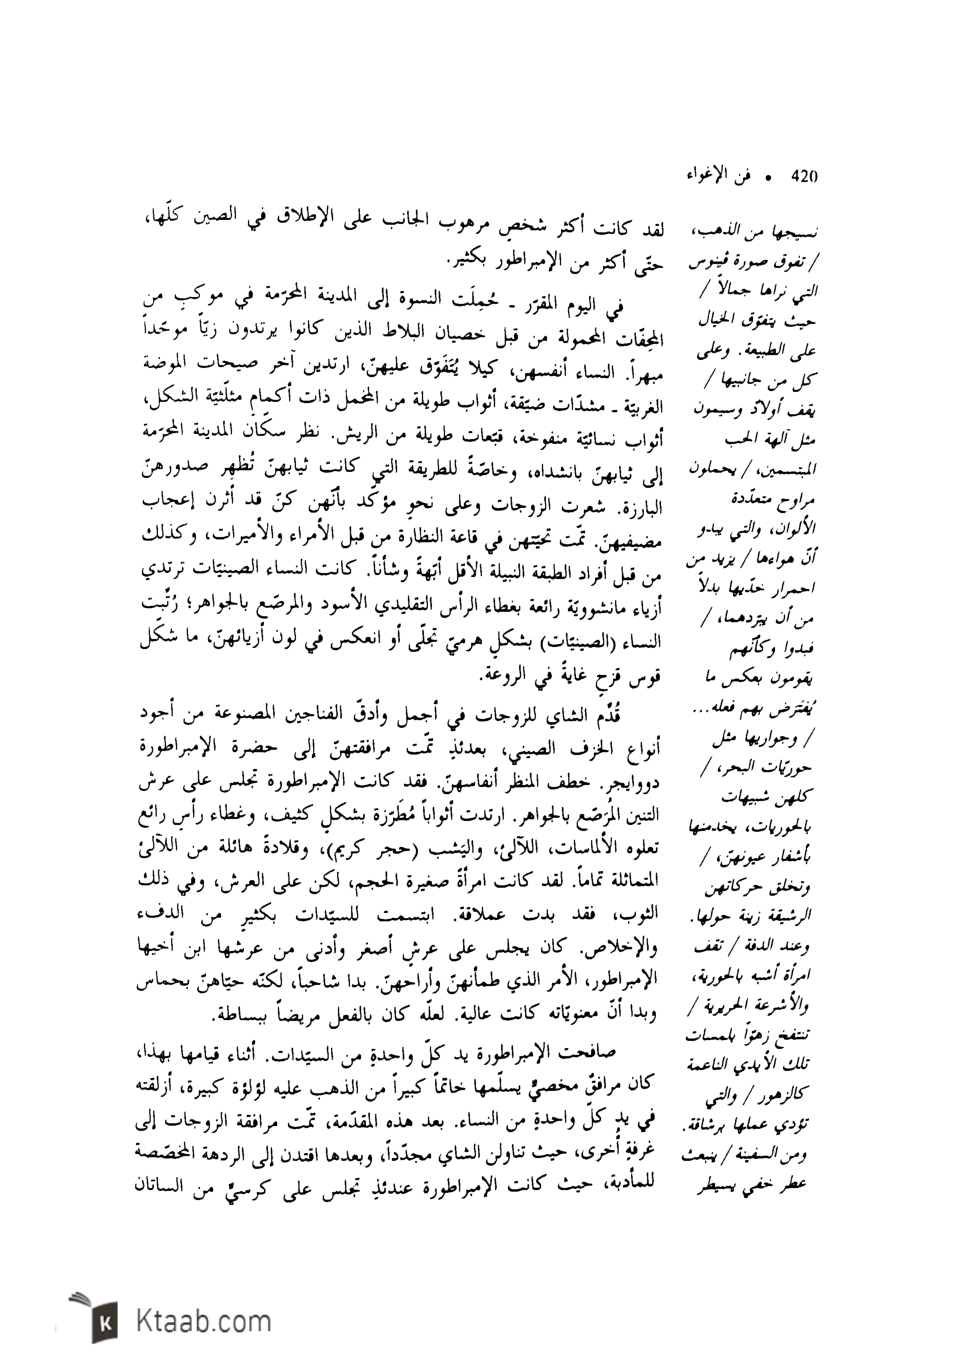 420 • فن الإغواء
لقد كانت أكثر شخصٍ مرهوب الجانب على الإطلاق في الصين كلّها،
حتّى أكثر من الإمبراطور بكثير.
في اليوم المقرّر ـ حُمِلَت النسوة إلى المدينة المحرّمة في موكبٍ من
المحِفّات المحمولة من قبل خصيان البلاط الذين كانوا يرتدون زيّاً موحّداً
مبهراً. النساء أنفسهن، كيلا يُتَفَوّق عليهنّ، ارتدين آخر صيحات الموضة
الغربيّة ـ مشدّات ضيّقة، أثواب طويلة من المخمل ذات أكمام مثلّثيّة الشكل،
أثواب نسائيّة منفوخة، قبّعات طويلة من الريش. نظر سكّان المدينة المحرّمة
إلى ثيابهنّ بانشداه، وخاصّةً للطريقة التي كانت ثيابهنّ تُظهِر صدورهنّ
البارزة. شعرت الزوجات وعلى نحوٍ مؤكّد بأنّهن كنّ قد أثرن إعجاب
مضيفيهنّ. تمّت تحيّتهن في قاعة النظارة من قبل الأمراء والأميرات، وكذلك
من قبل أفراد الطبقة النبيلة الأقل أبّهةً وشأناً. كانت النساء الصينيّات ترتدي
أزياء مانشوويّة رائعة بغطاء الرأس التقليدي الأسود والمرصّع بالجواهر؛ رُتِّبت
النساء (الصينيّات) بشكلٍ هرميّ تجلّى أو انعكس في لون أزيائهنّ، ما شكّل
قوس قزحٍ غايةً في الروعة.
قُدِّم الشاي للزوجات في أجمل وأدقّ الفناجين المصنوعة من أجود
أنواع الخزف الصيني، بعدئذٍ تمّت مرافقتهنّ إلى حضرة الإمبراطورة
دووايجر. خطف المنظر أنفاسهنّ. فقد كانت الإمبراطورة تجلس على عرش
التنين المُرَصّع بالجواهر. ارتدت أثواباً مُطَرّزة بشكلٍ كثيف، وغطاء رأسٍ رائع
تعلوه الألماسات، اللآلئ، واليَشب (حجر كريم)، وقلادةً هائلة من اللآلئ
المتماثلة تماماً. لقد كانت امرأةً صغيرة الحجم، لكن على العرش، وفي ذلك
الثوب، فقد بدت عملاقة. ابتسمت للسيّدات بكثيرٍ من الدفء
والإخلاص. كان يجلس على عرشٍ أصغر وأدنى من عرشها ابن أخيها
الإمبراطور، الأمر الذي طمأنهنّ وأراحهنّ. بدا شاحباً، لكنّه حيّاهنّ بحماس
وبدا أنّ معنويّاته كانت عالية. لعلّه كان بالفعل مريضاً ببساطة.
صافحت الإمبراطورة يد كلّ واحدةٍ من السيّدات. أثناء قيامها بهذا،
كان مرافقٌ مخصيٌّ يسلّمها خاتماً كبيراً من الذهب عليه لؤلؤة كبيرة، أزلقته
في يدِ كلّ واحدةٍ من النساء. بعد هذه المقدّمة، تمّت مرافقة الزوجات إلى
غرفةٍ أُخرى، حيث تناولن الشاي مجدّداً، وبعدها اقتدن إلى الردهة المخصّصة
للمأدبة، حيث كانت الإمبراطورة عندئذٍ تجلس على كرسيٍّ من الساتان
نسيجها من الذهب،
/ تفوق صورة ڤينوس
التي نراها جمالاً /
حيث يتفوّق الخيال
على الطبيعة. وعلى
كل من جانبيها /
يقف أولادٌ وسيمون
مثل آلهة الحب
المبتسمين، / يحملون
مراوح متعدّدة
الألوان، والتي يبدو
أنّ هواءها / يزيد من
احمرار خدّيها بدلاً
من أن يبرّدهما، /
فبدوا وكأنّهم
يقومون بعكس ما
يُفترَض بهم فعله...
/ وجواريها مثل
حوريّات البحر، /
كلهن شبيهات
بالحوريات، يخدمنها
بأشفار عيونهنّ، /
وتخلق حركاتهن
الرشيقة زينة حولها.
وعند الدفة / تقف
امرأة أشبه بالحورية،
والأشرعة الحريرية /
تنتفخ زهوّاً بلمسات
تلك الأيدي الناعمة
كالزهور / والتي
تؤدي عملها برشاقة.
ومن السفينة / ينبعث
عطر خفي يسيطر
Ktaab.com